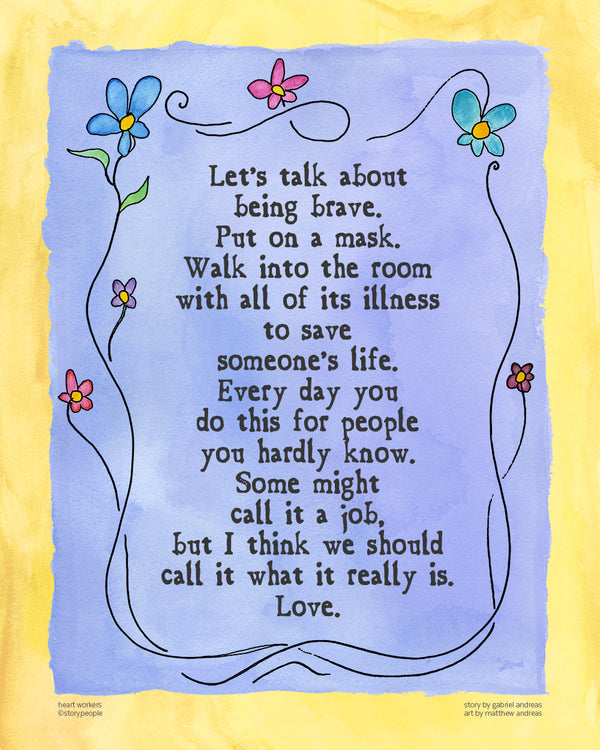 Let's talk about
being brave.
Put on a mask.
Walk into the room
with all of its illness
to save
someone's life.
Every day you
do this for people
you hardly know.
Some might
call it a job,
but I think we should
call it what it really is.
Love.
heart workers
©storypeople
story by gabriel andreas
art by matthew andreas